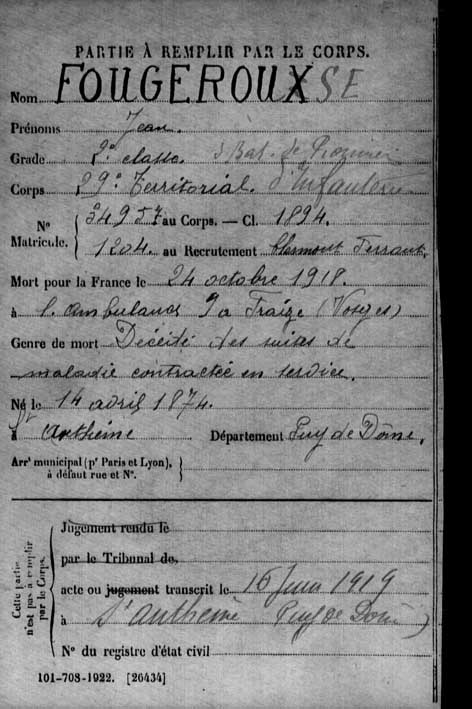 PARTIE À REMPLIR PAR LE CORPS.
Nom FOUGEROUXSE
Prénoms Jean.
Grade 2e classe. 3 Bat. de
Corps 29e Territorial. d'Infanterie
N° Matricule. { 34957 au Corps. — Cl. 1894.
1204. au Recrutement Clermont Ferrand.
Mort pour la France le 24 octobre 1918.
à l'ambulance 9 a Fraize (Vosges)
Genre de mort Décédé des suites de
maladie contractée en service.
Né le 14 avril 1874.
à St Anthème Département Puy de Dôme.
Arrt municipal (pr Paris et Lyon), }
à défaut rue et N°.
Cette partie n'est pas à remplir par le Corps.
Jugement rendu le
par le Tribunal de
acte ou jugement transcrit le 16 Juin 1919
à St Anthème Puy de Dôme)
N° du registre d'état civil
101-708-1922. [26434]